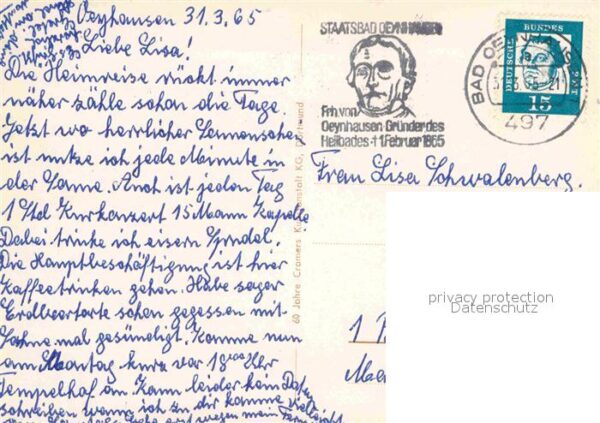 Oeynhausen 31.3.65
Liebe Lisa!
Die Heimreise rückt immer
näher zähle schon die Tage.
Jetzt wo herrlicher Sonnenschein
ist nutze ich jede Minute in
der Sonne. Auch ist jeden Tag
1 Std Kurkonzert 15 Mann Kapelle
Dabei trinke ich eisern Sprudel.
Die Hauptbeschäftigung ist hier
Kaffeetrinken gehen. Habe sogar
Erdbeertorte schon gegessen mit
Sahne mal gesündigt. Komme nun
am Montag kurz vor 18 Uhr
Tempelhof an. Kann leider kein Datum
schreiben wann ich zu dir komme vielleicht
60 Jahre Cramers Kunstanstalt KG, Dortmund
STAATSBAD OEYNHAUSEN
Frh. von
Oeynhausen Gründer des
Heilbades + 1. Februar 1865
DEUTSCHE
BUNDES
POST
15
BAD OEYNHAUSEN
497
Frau Lisa Schwalenberg.
privacy protection
Datenschutz
1